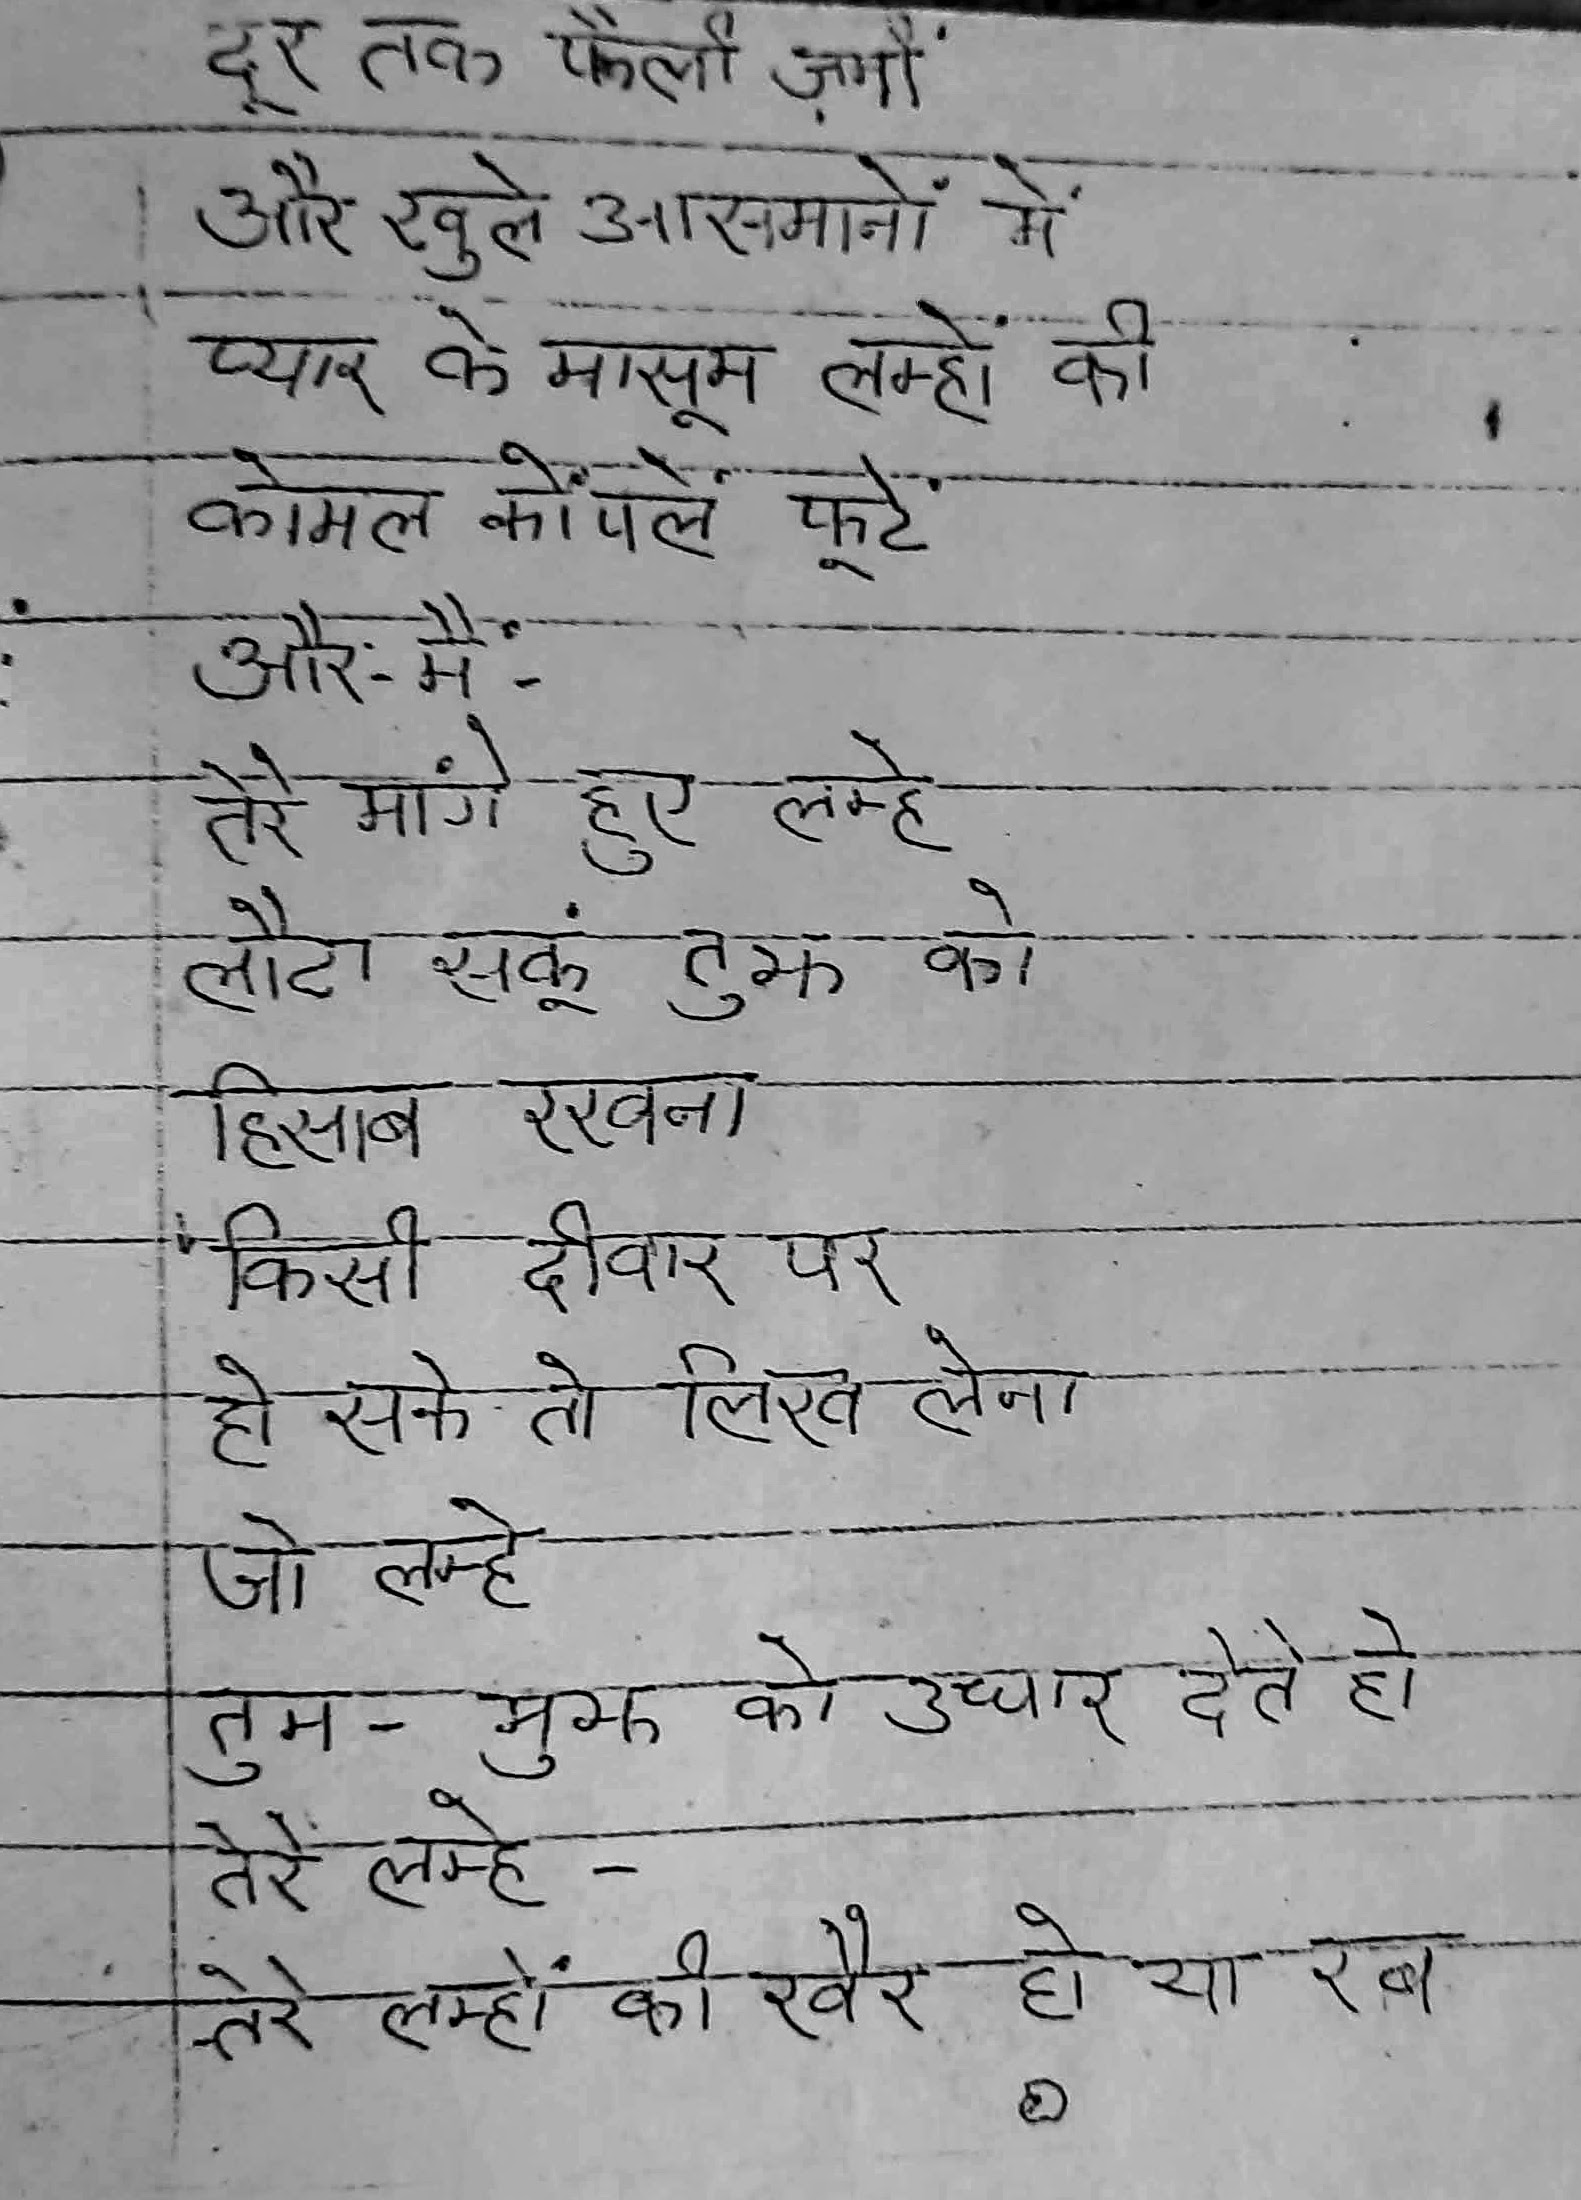 दूर तक फैली ज़मीं
और खुले आसमानों में
प्यार के मासूम लम्हों की
कोमल कोंपलें फूटें
और - मैं -
तेरे मांगे हुए लम्हे
लौटा सकूं तुझ को
हिसाब रखना
किसी दीवार पर
हो सके तो लिख लेना
जो लम्हे
तुम - मुझ को उधार देते हो
तेरे लम्हे -
तेरे लम्हों की खैर हो या रब